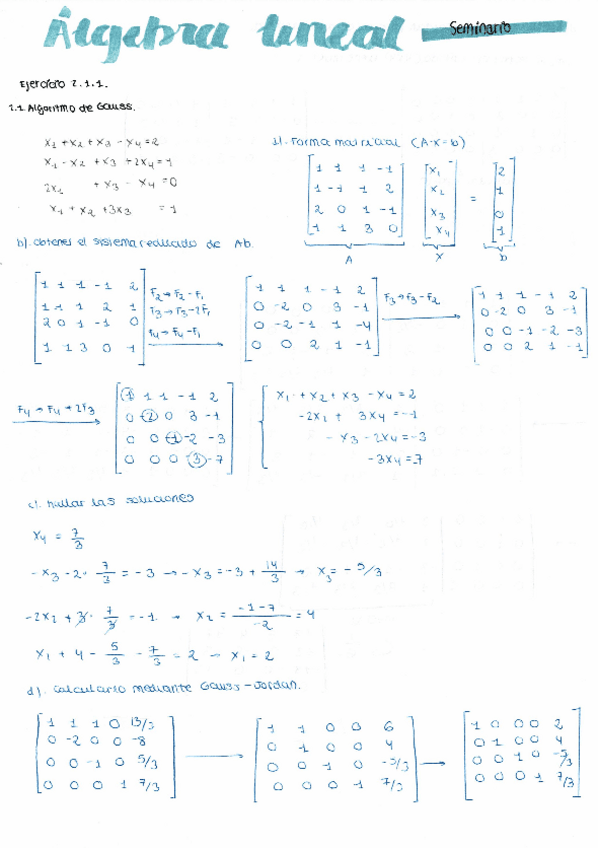 Álgebra lineal Seminario
Ejercicio 2.1.1.
2.1 Algoritmo de Gauss.
x1 + x2 + x3 - x4 = 2
x1 - x2 + x3 + 2x4 = 1
2x1 + x3 - x4 = 0
x1 + x2 + 3x3 = 1
a). Forma matricial (A·x = b)
1 1 1 -1 x1 2
1 -1 1 2 x2 1
2 0 1 -1 x3 = 0
1 1 3 0 x4 1
A x b
b). obtener el sistema reducido de Ab.
1 1 1 -1 2
1 -1 1 2 1
2 0 1 -1 0
1 1 3 0 1
F2 → F2 - F1
F3 → F3 - 2F1
F4 → F4 - F1
1 1 1 -1 2
0 -2 0 3 -1
0 -2 -1 1 -4
0 0 2 1 -1
F3 → F3 - F2
1 1 1 -1 2
0 -2 0 3 -1
0 0 -1 -2 -3
0 0 2 1 -1
F4 → F4 + 2F3
1 1 1 -1 2
0 -2 0 3 -1
0 0 -1 -2 -3
0 0 0 -3 -7
x1 + x2 + x3 - x4 = 2
-2x2 + 3x4 = -1
- x3 - 2x4 = -3
-3x4 = -7
c). Hallar las soluciones
x4 = 7/3
-x3 - 2· 7/3 = -3 → -x3 = -3 + 14/3 → x3 = -5/3
-2x2 + 3· 7/3 = -1. → x2 = -1-7/-2 = 4
x1 + 4 - 5/3 - 7/3 = 2 → x1 = 2
d). Calcularlo mediante Gauss-Jordan.
1 1 1 0 13/3
0 -2 0 0 -8
0 0 -1 0 5/3
0 0 0 1 7/3
→
1 1 0 0 6
0 1 0 0 4
0 0 1 0 -5/3
0 0 0 1 7/3
→
1 0 0 0 2
0 1 0 0 4
0 0 1 0 -5/3
0 0 0 1 7/3